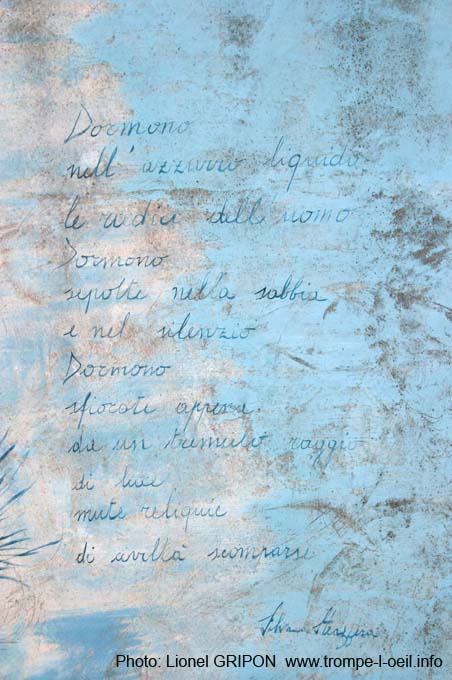 Dormono
nell'azzurro liquido
le radici dell'uomo
Dormono
sepolte nella sabbia
e nel silenzio
Dormono
sfiorate appena
da un tremulo raggio
di luce
mute reliquie
di civiltà scomparse
Photo: Lionel GRIPON www.trompe-l-oeil.info